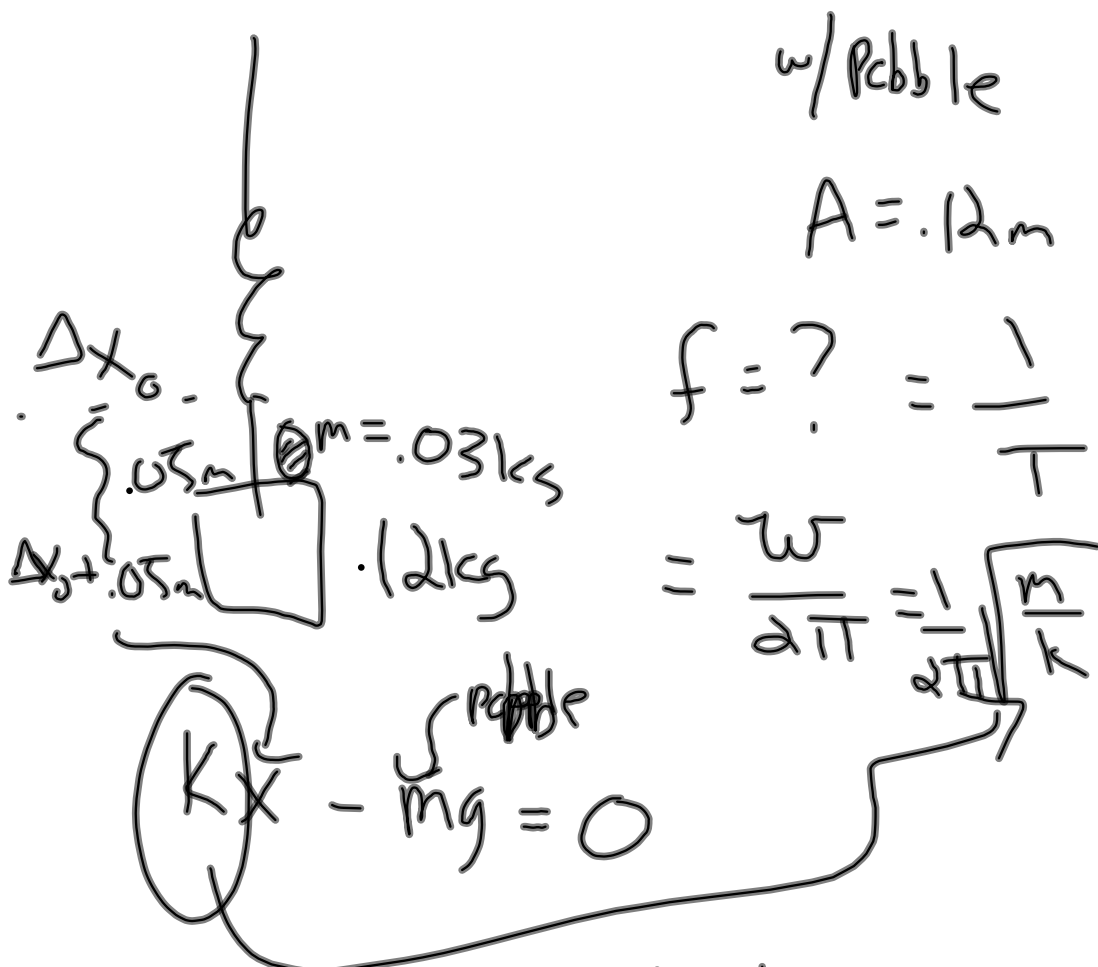 w/ Pebble
A = .12m
f = ? = 1/T
= w/2π = 1/2π √m/k
Δx₀
.05m
m = .03kg
Δx₀ + .05m
.12kg
pebble
Kx - mg = 0